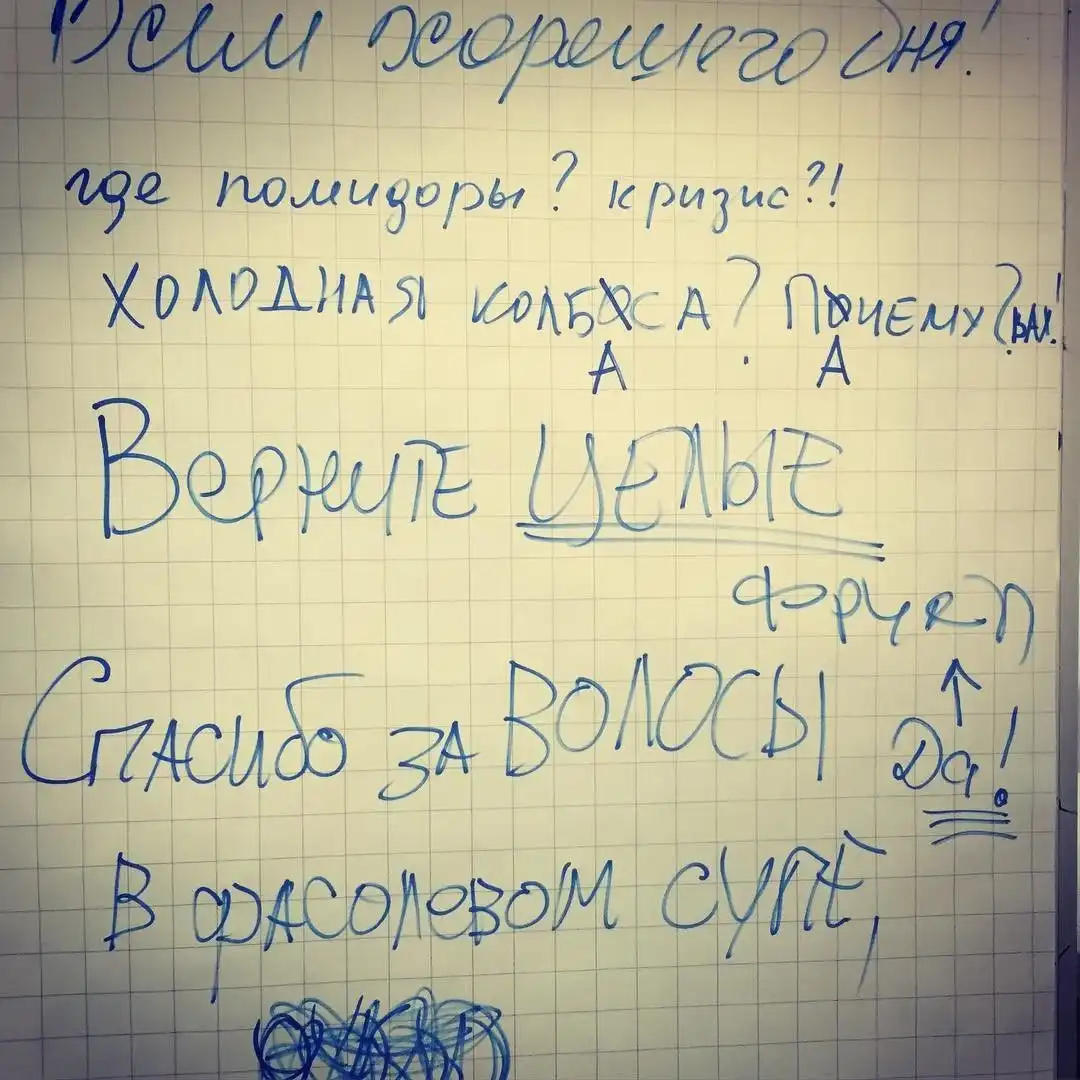 Всем хорошего дня!
где помидоры? кризис?!
ХОЛОДНАЯ КОЛБАСА? ПАЧЕМУ? ВАХ!
ВЕРНИТЕ ЦЕЛЫЕ
фрукты
Спасибо за ВОЛОСЫ
Да!
В фасолевом супе,